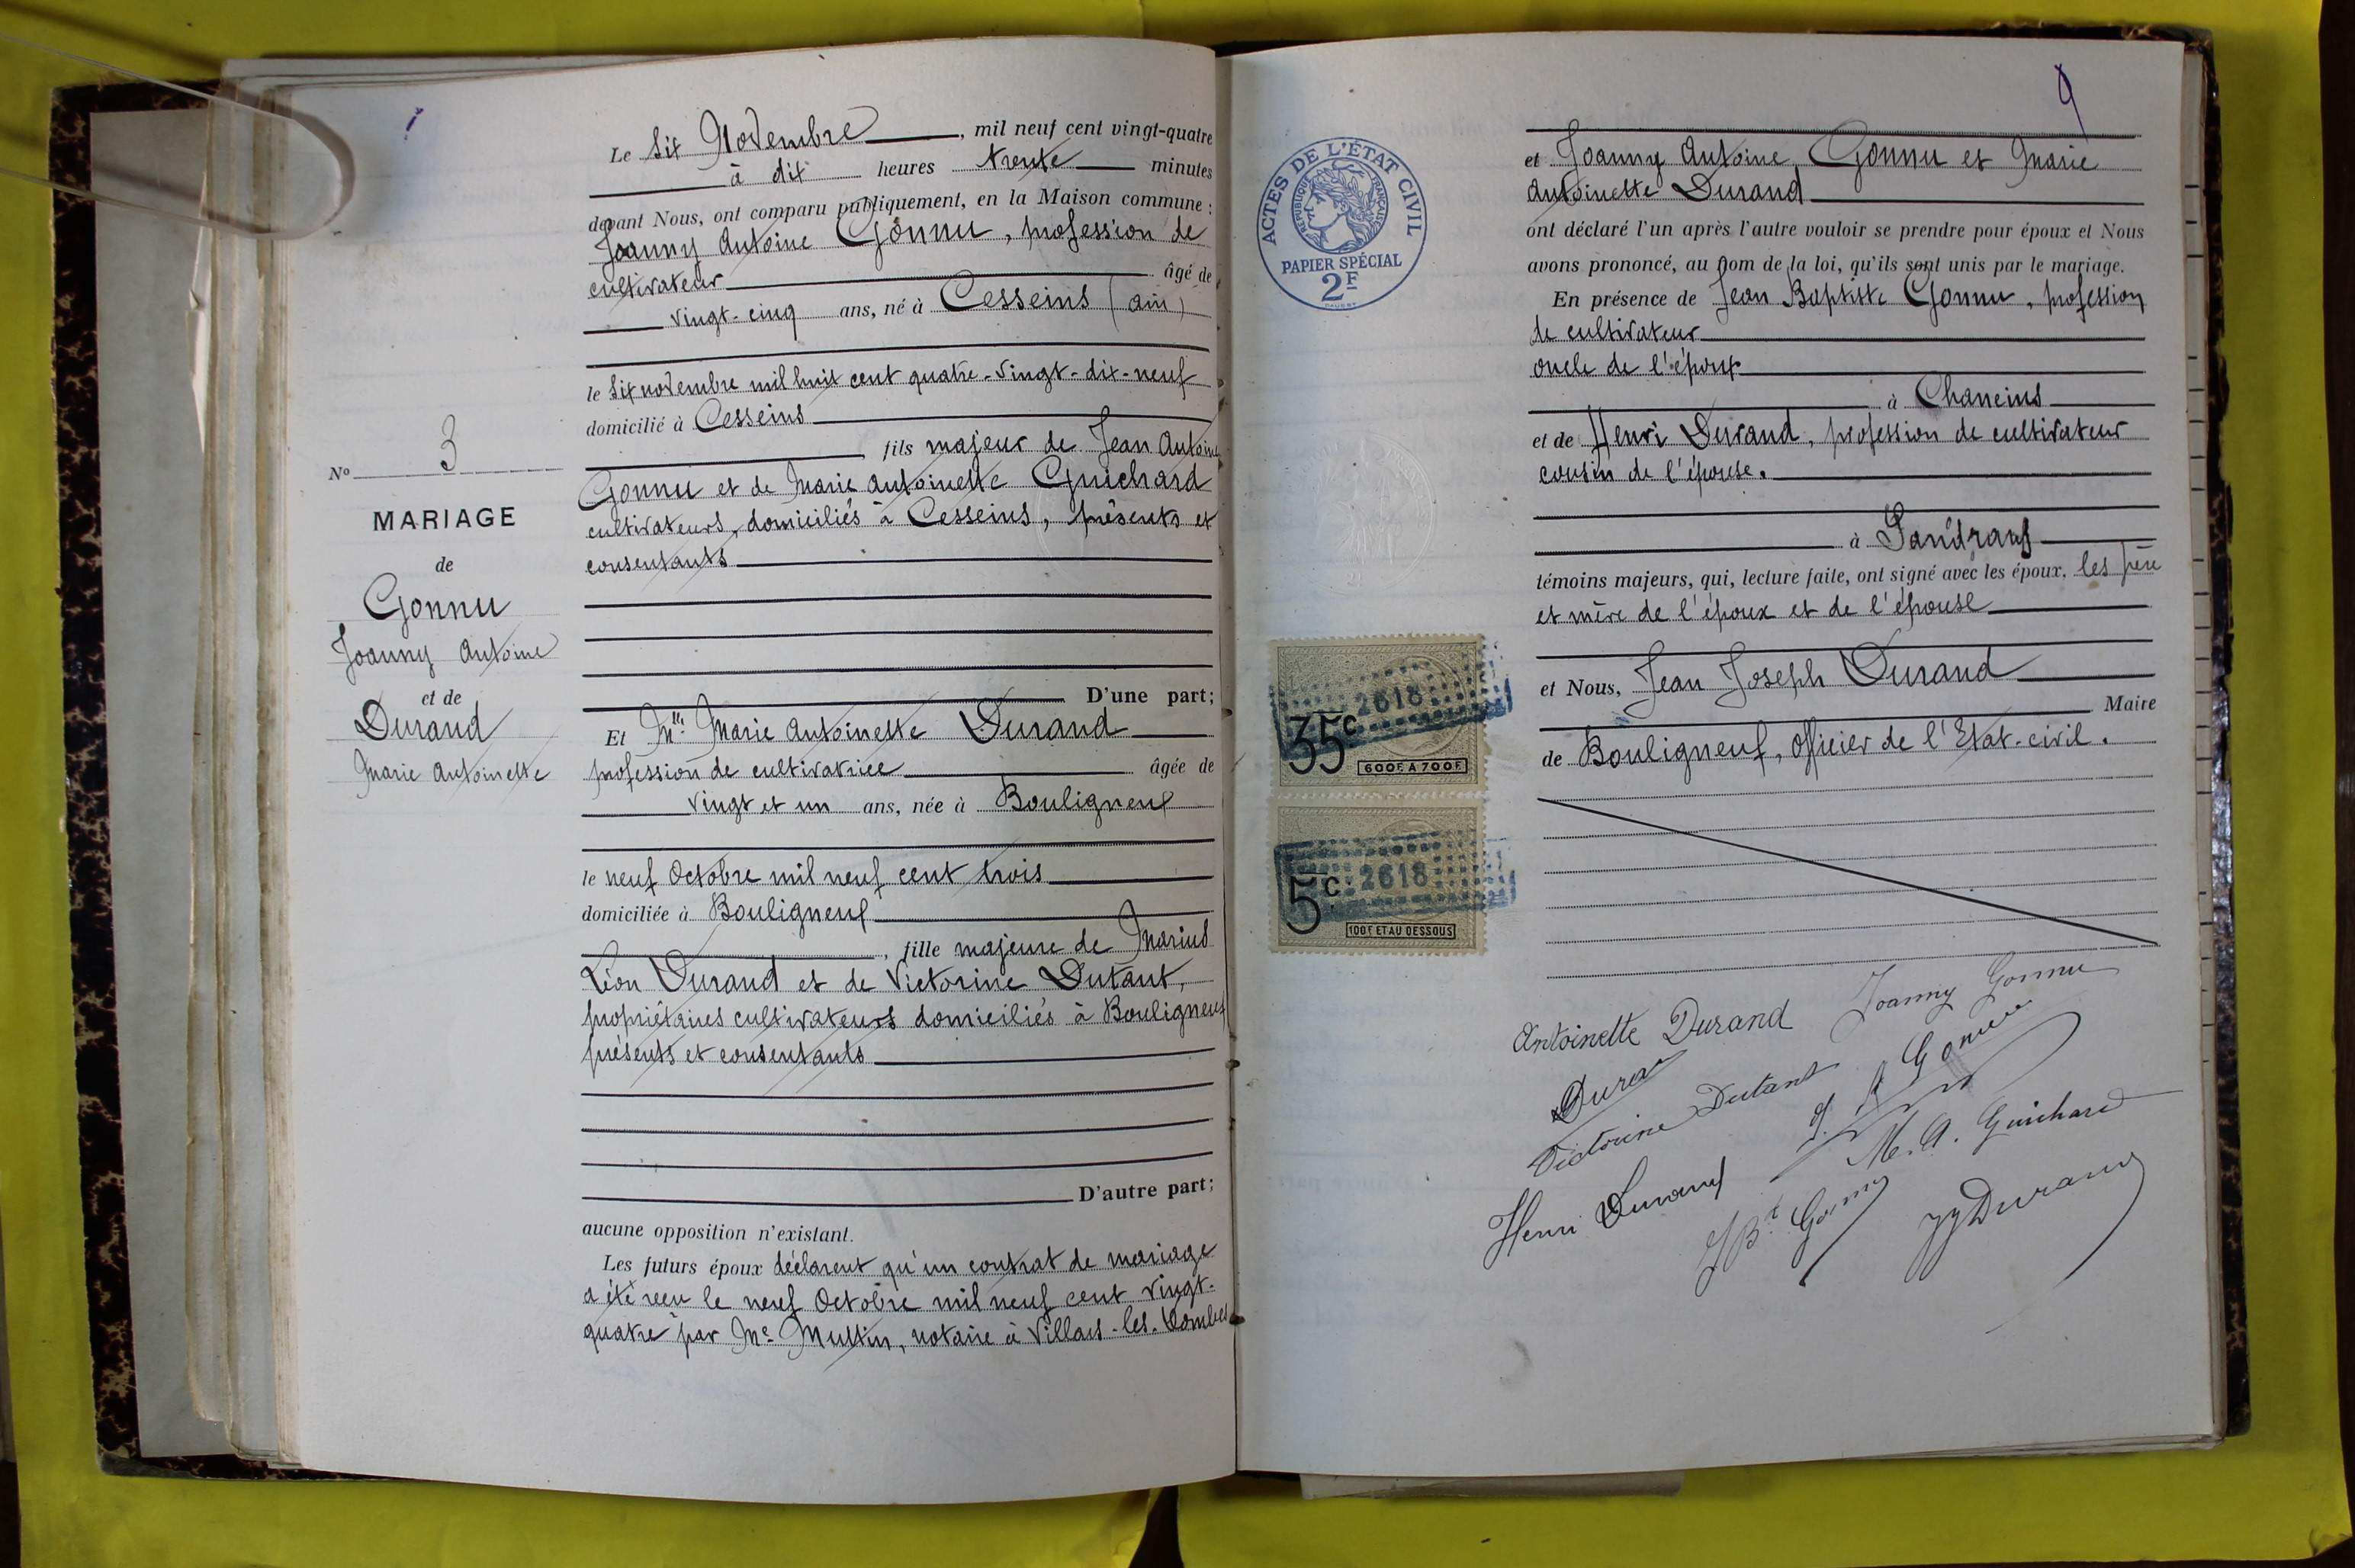 N° 3
MARIAGE
de
Gonnu
Joanny Antoine
et de
Durand
Marie Antoinette
Le Six Novembre, mil neuf cent vingt-quatre
à dix heures trente minutes
devant Nous, ont comparu publiquement, en la Maison commune :
Joanny Antoine Gonnu, profession de
cultivateur âgé de
vingt-cinq ans, né à Cesseins (Ain)
le Six novembre mil huit cent quatre-vingt-dix-neuf
domicilié à Cesseins
fils majeur de Jean Antoine
Gonnu et de Marie Antoinette Guichard
cultivateurs, domiciliés à Cesseins, présents et
consentants
D'une part;
Et Mlle Marie Antoinette Durand
profession de cultivatrice âgée de
vingt et un ans, née à Bouligneux
le neuf Octobre mil neuf cent trois
domiciliée à Bouligneux
, fille majeure de Marius
Léon Durand et de Victorine Dutant,
propriétaires cultivateurs domiciliés à Bouligneux
présents et consentants
D'autre part;
aucune opposition n'existant.
Les futurs époux déclarent qu'un contrat de mariage
a été reçu le neuf Octobre mil neuf cent vingt-
quatre par Me Mullin, notaire à Villars-les-Dombes
9
ACTES DE L'ÉTAT CIVIL
RÉPUBLIQUE FRANÇAISE
PAPIER SPÉCIAL
2F
et Joanny Antoine Gonnu et Marie
Antoinette Durand
ont déclaré l'un après l'autre vouloir se prendre pour époux et Nous
avons prononcé, au nom de la loi, qu'ils sont unis par le mariage.
En présence de Jean Baptiste Gonnu, profession
de cultivateur
oncle de l'époux
à Chaneins
et de Henri Durand, profession de cultivateur
cousin de l'épouse.
à Sandrans
témoins majeurs, qui, lecture faite, ont signé avec les époux, les père
et mère de l'époux et de l'épouse
et Nous, Jean Joseph Durand
Maire
de Bouligneux, Officier de l'Etat-civil.
2618
35c
600F A 700F
2618
5c
100F ET AU DESSOUS
Antoinette Durand Joanny Gonnu
Durand
Victorine Dutant J. A Gonnu
M. A. Guichard
Henri Durand
J Bt Gonnu JJDurand